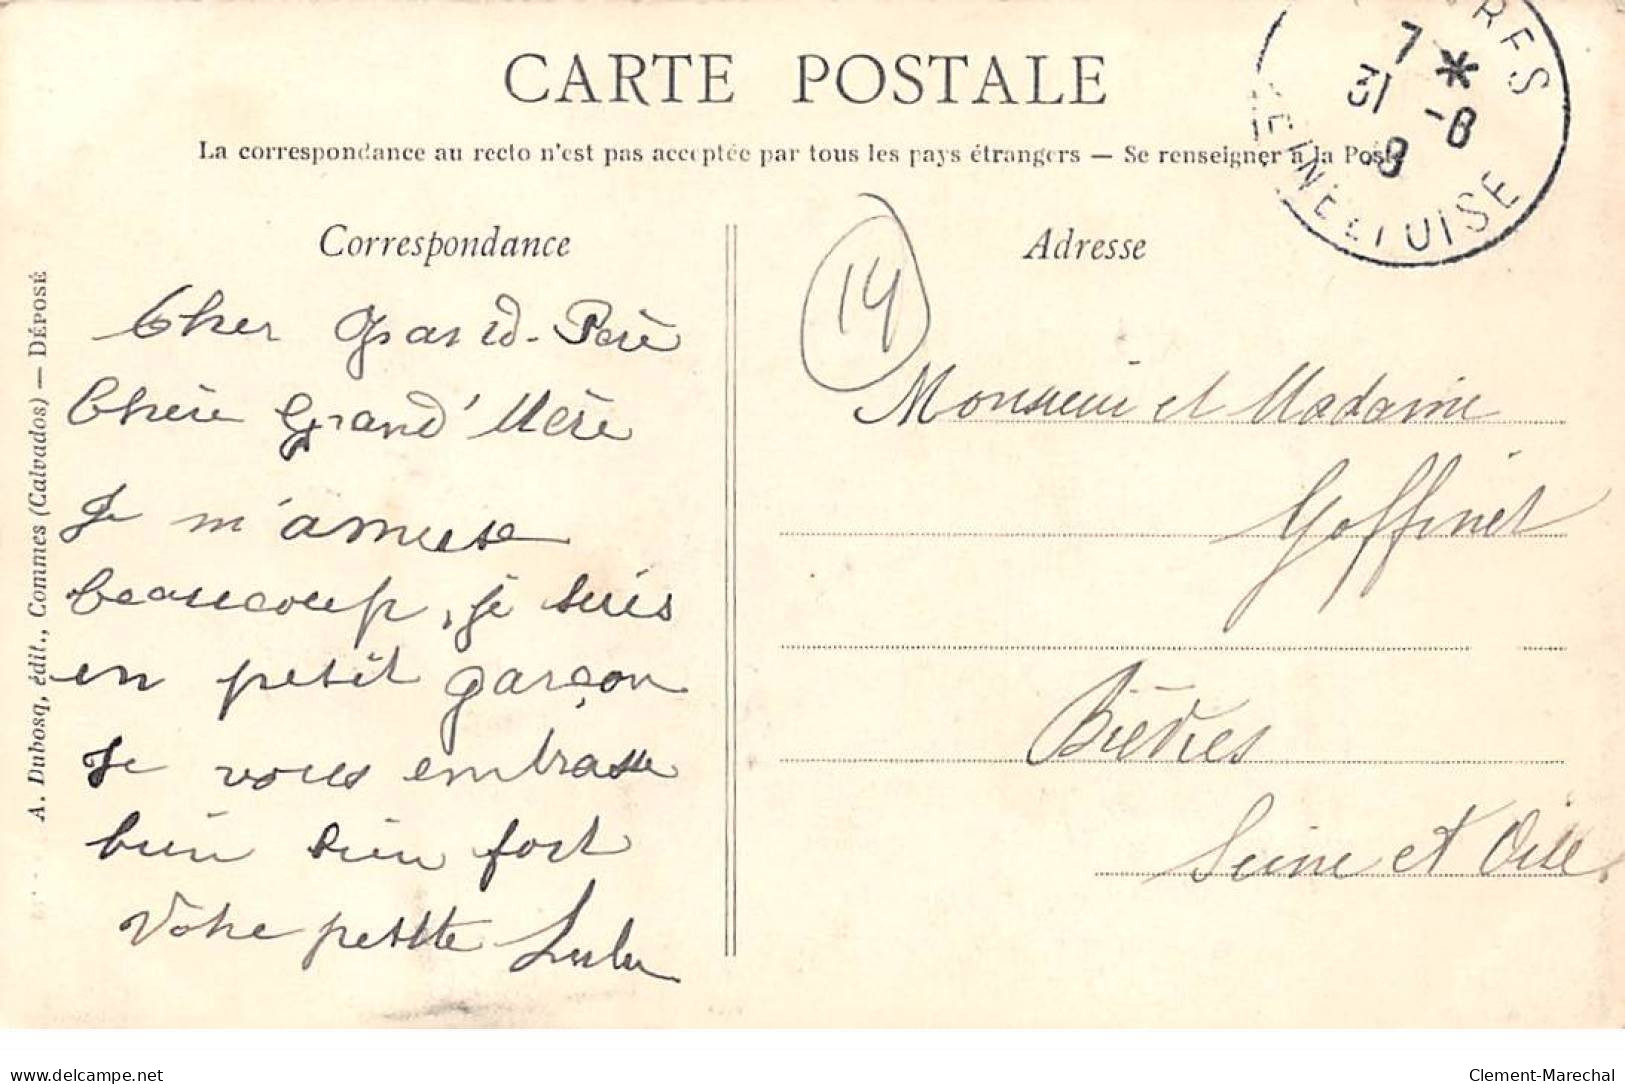 CARTE POSTALE
La correspondance au recto n'est pas acceptée par tous les pays étrangers — Se renseigner à la Poste
7 *
31 -8
9
SEINE ET OISE
Correspondance
Cher Grand-Père
Chère Grand'Mère
Je m'amuse
beaucoup, je suis
en petit garçon
Je vous embrasse
bien bien fort
Votre petite Lulu
Adresse
14
Monsieur et Madame
Goffinet
Bièvres
Seine et Oise
A. Dubosq, édit., Commes (Calvados) — DÉPOSÉ
delcampe.net
Clement-Marechal